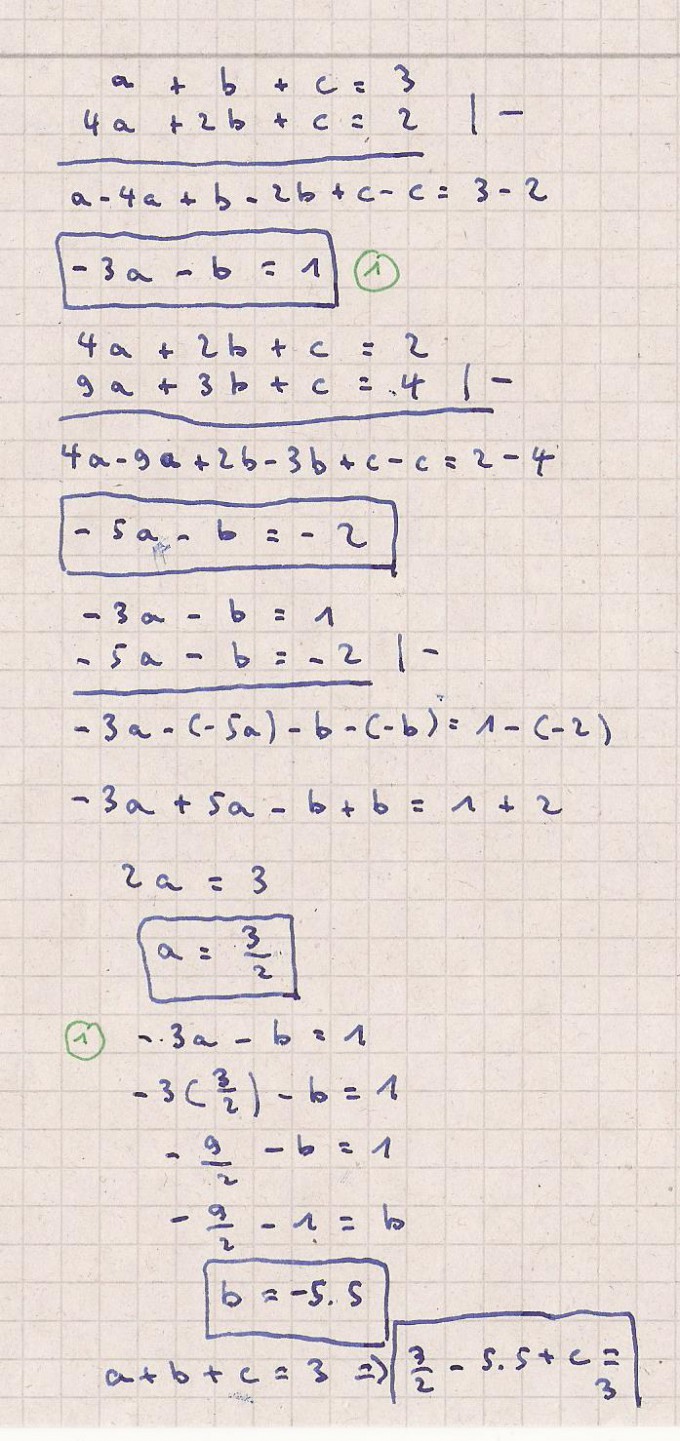 a + b + c = 3
4a + 2b + c = 2 | -
a - 4a + b - 2b + c - c = 3 - 2
-3a - b = 1 ①
4a + 2b + c = 2
9a + 3b + c = 4 | -
4a - 9a + 2b - 3b + c - c = 2 - 4
-5a - b = -2
-3a - b = 1
-5a - b = -2 | -
-3a - (-5a) - b - (-b) = 1 - (-2)
-3a + 5a - b + b = 1 + 2
2a = 3
a = 3/2
① -3a - b = 1
-3(3/2) - b = 1
-9/2 - b = 1
-9/2 - 1 = b
b = -5.5
a + b + c = 3 => 3/2 - 5.5 + c = 3